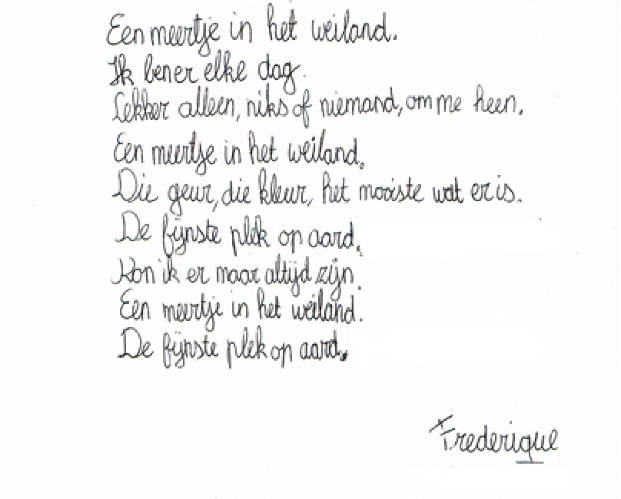 Een meertje in het weiland.
Ik ben er elke dag.
Lekker alleen, niks of niemand, om me heen.
Een meertje in het weiland.
Die geur, die kleur, het mooiste wat er is.
De fijnste plek op aard.
Kon ik er maar altijd zijn.
Een meertje in het weiland.
De fijnste plek op aard.
Frederique